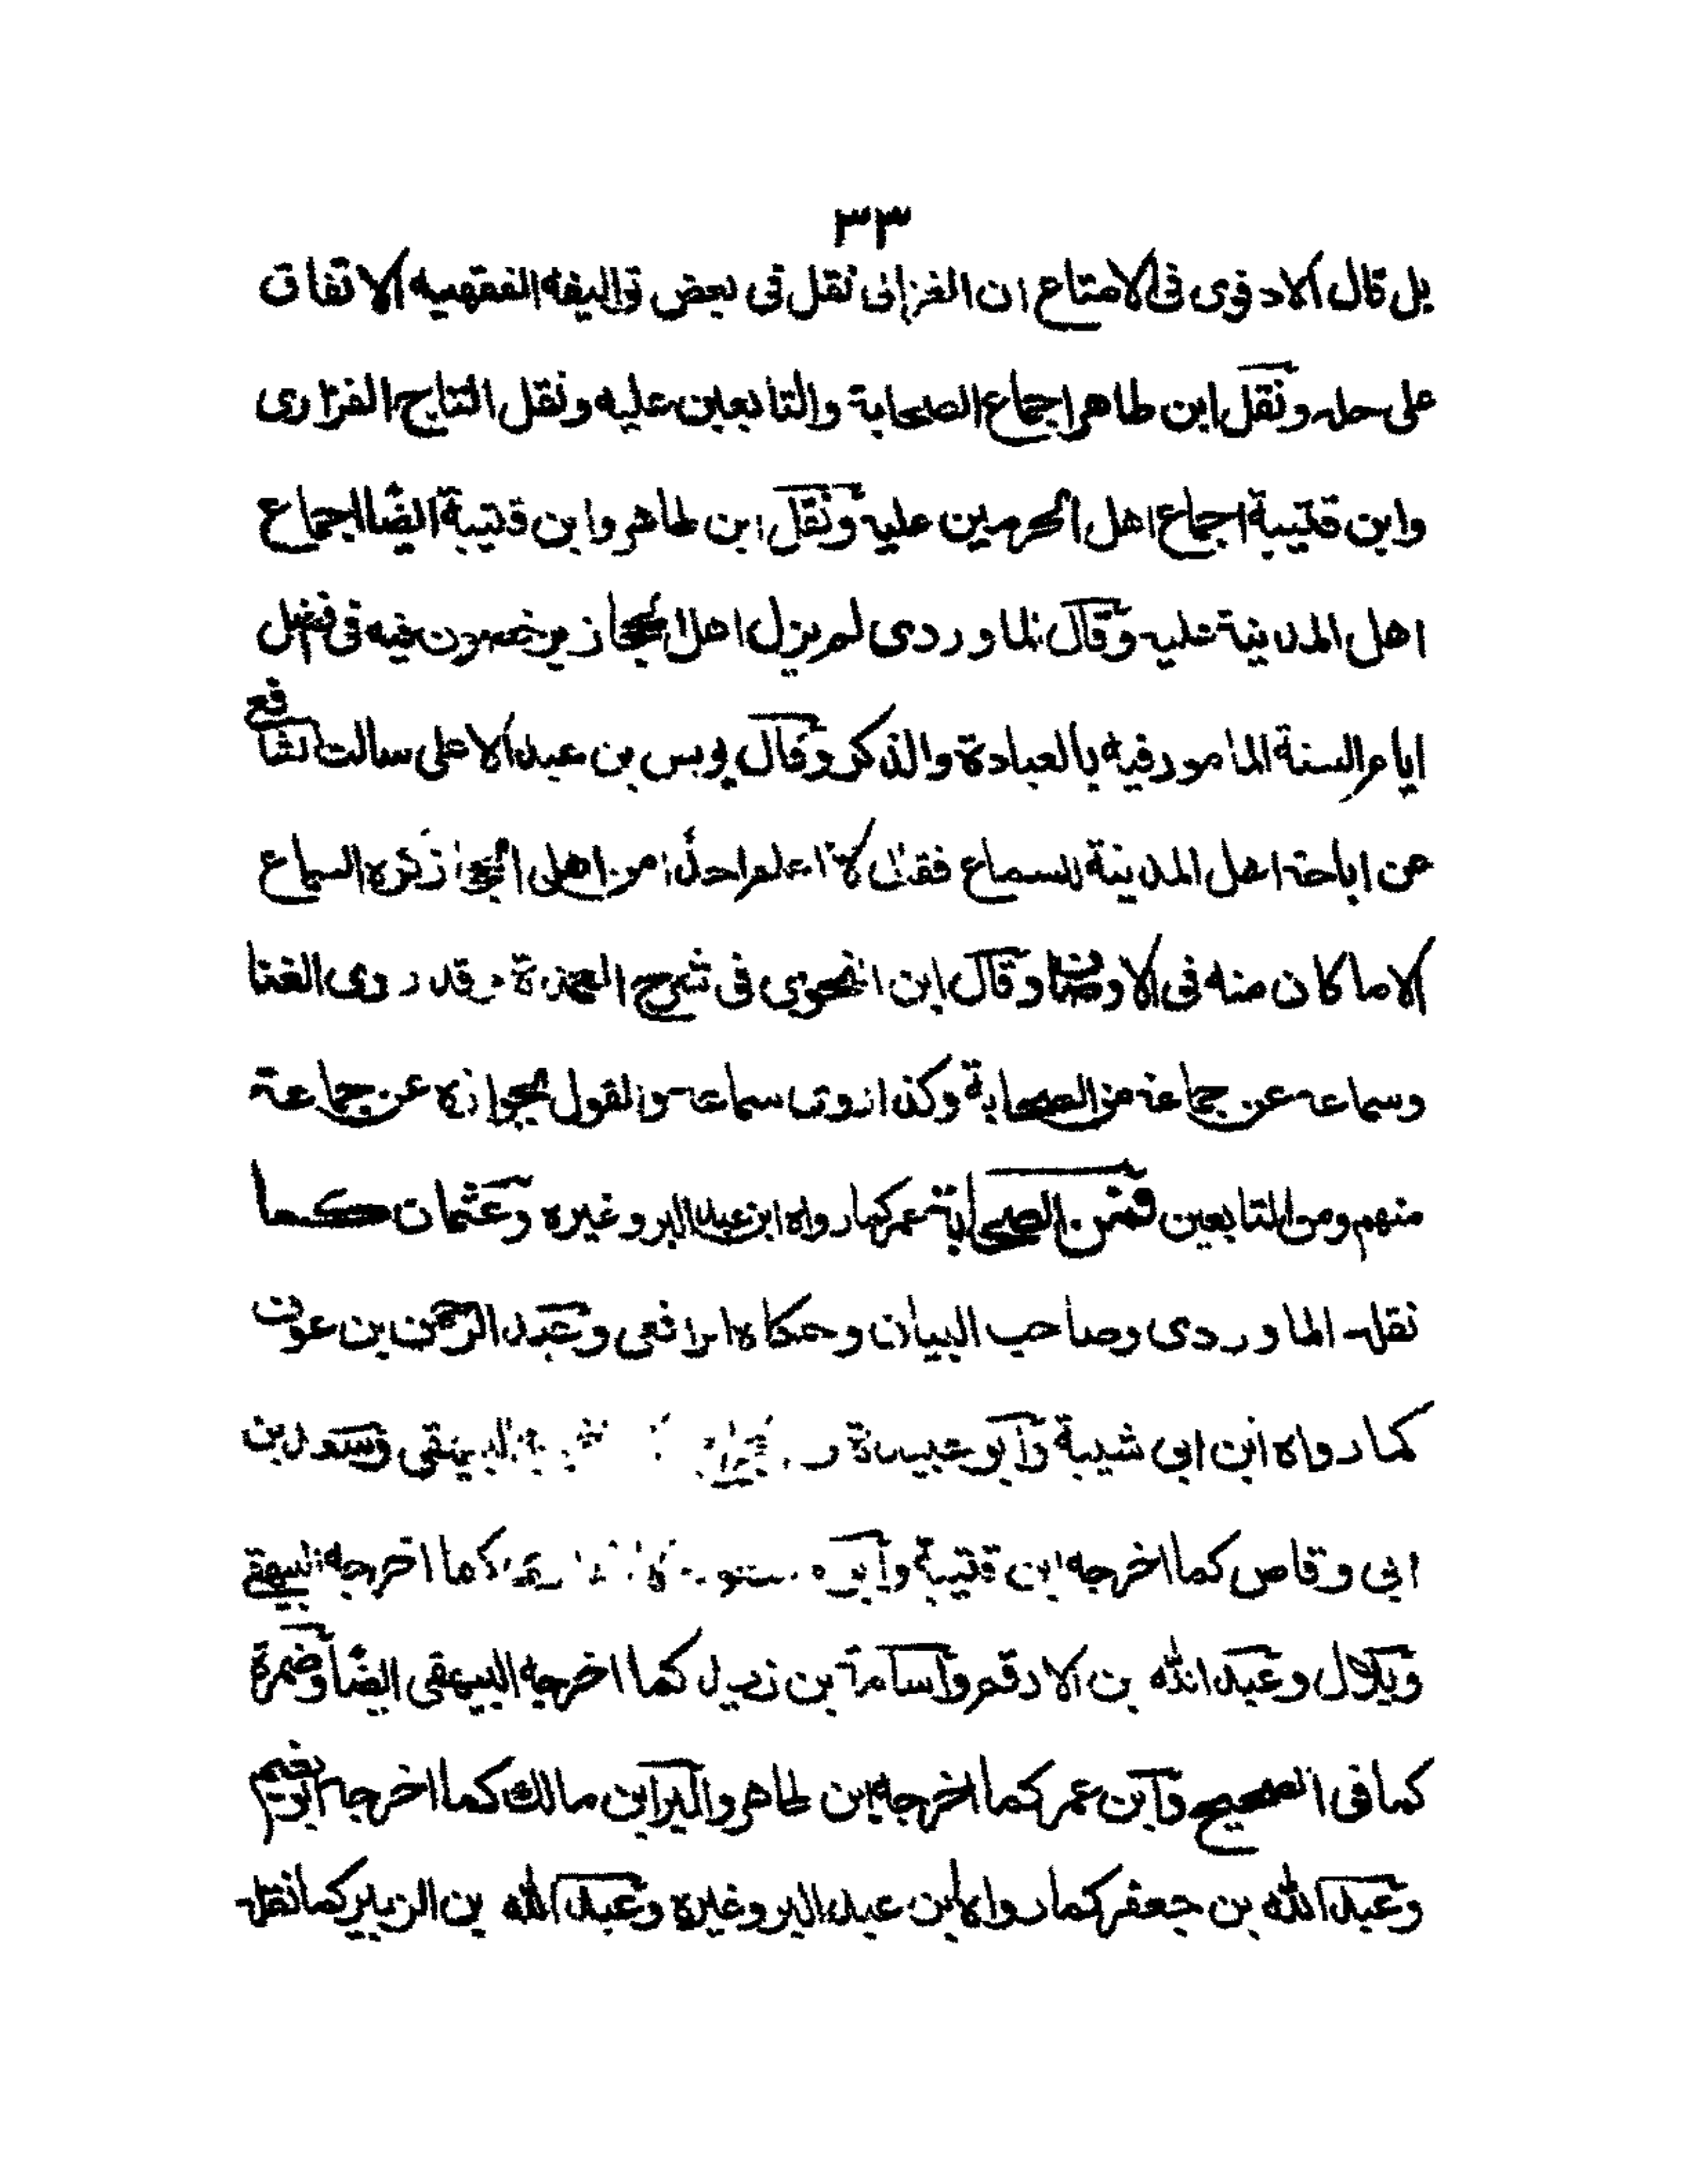 ٣٣
بل قال الادفوى فى الامتاع ان الغزالى نقل فى بعض تواليفه الفقهيه الاتفاق
على حله ونقل ابن طاهر اجماع الصحابة والتابعين عليه ونقل التاج الفزارى
وابن قتيبة اجماع اهل الحرمين عليه ونقل ابن طاهر وابن قتيبة ايضا اجماع
اهل المدينة عليه وقال الماوردى لم يزل اهل الحجاز يرخصون فيه فى فضل
ايام السنة المامور فيه بالعبادة والذكر وقال يونس بن عبد الاعلى سالت الشافع
عن اباحة اهل المدينة للسماع فقال لا اعلم احدا من اهل الحجاز كره السماع
الا ما كان منه فى الاوصاف وقال ابن النحوى فى شرح العمدة وقد روى الغنا
وسماعه عن جماعة من الصحابة وكذا روى سماعه والقول بجوازه عن جماعة
منهم ومن التابعين فمن الصحابة عمر كما رواه ابن عبد البر وغيره وعثمان كما
نقله الماوردى وصاحب البيان وحكاه الرافعى وعبد الرحمن بن عوف
كما رواه ابن ابى شيبة وابو عبيدة البيهقى وسعد بن
ابى وقاص كما اخرجه ابن قتيبة وابو كما اخرجه البيهقى
وبلال وعبد الله بن الارقم واسامة بن زيد كما اخرجه البيهقى ايضا وحمزة
كما فى الصحيح وابن عمر كما اخرجه ابن طاهر والبرا بن مالك كما اخرجه ابو نعيم
وعبد الله بن جعفر كما رواه ابن عبد البر وغيره وعبد الله بن الزبير كما نقله